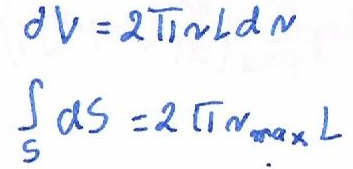 dV = 2πrLdr
∫_S dS = 2πr_max L